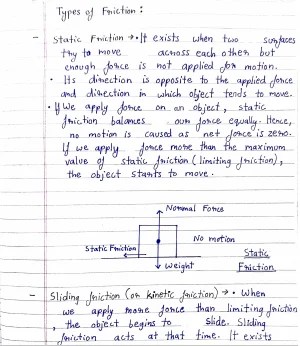 Types of Friction :
- Static Friction → • It exists when two surfaces
try to move across each other but
enough force is not applied for motion.
• Its direction is opposite to the applied force
and direction in which object tends to move.
• If We apply force on an object, static
friction balances our force equally. Hence,
no motion is caused as net force is zero.
If we apply force more than the maximum
value of static friction (limiting friction),
the object starts to move.
Normal Force
No motion
Static Friction
Weight
Static
Friction
- Sliding friction (or kinetic friction) → • When
we apply more force than limiting friction
, the object begins to slide. Sliding
friction acts at that time. It exists